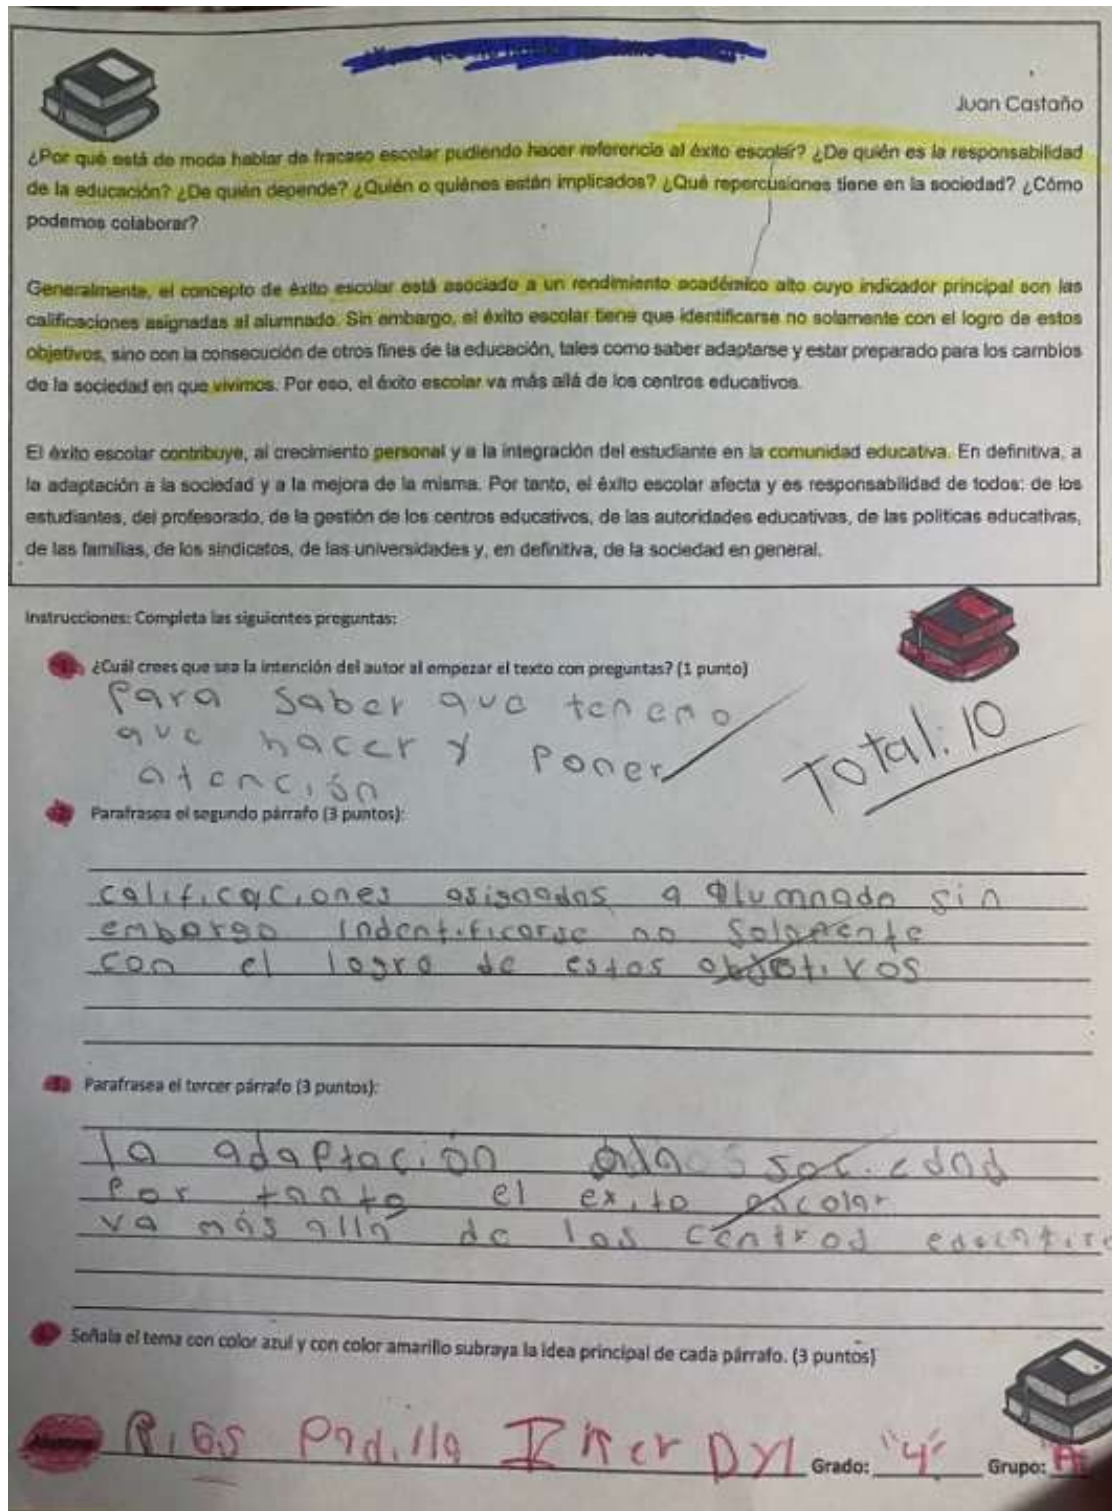 Juan Castaño
¿Por qué está de moda hablar de fracaso escolar pudiendo hacer referencia al éxito escolar? ¿De quién es la responsabilidad
de la educación? ¿De quién depende? ¿Quién o quiénes están implicados? ¿Qué repercusiones tiene en la sociedad? ¿Cómo
podemos colaborar?
Generalmente, el concepto de éxito escolar está asociado a un rendimiento académico alto cuyo indicador principal son las
calificaciones asignadas al alumnado. Sin embargo, el éxito escolar tiene que identificarse no solamente con el logro de estos
objetivos, sino con la consecución de otros fines de la educación, tales como saber adaptarse y estar preparado para los cambios
de la sociedad en que vivimos. Por eso, el éxito escolar va más allá de los centros educativos.
El éxito escolar contribuye, al crecimiento personal y a la integración del estudiante en la comunidad educativa. En definitiva, a
la adaptación a la sociedad y a la mejora de la misma. Por tanto, el éxito escolar afecta y es responsabilidad de todos: de los
estudiantes, del profesorado, de la gestión de los centros educativos, de las autoridades educativas, de las políticas educativas,
de las familias, de los sindicatos, de las universidades y, en definitiva, de la sociedad en general.
Instrucciones: Completa las siguientes preguntas:
¿Cuál crees que sea la intención del autor al empezar el texto con preguntas? (1 punto)
Para saber que tenemo
que hacer y poner
atención
Total: 10
Parafrasea el segundo párrafo (3 puntos):
calificaciones asignadas a alumnado sin
embargo indentificarse no solamente
con el logro de estos objetivos
Parafrasea el tercer párrafo (3 puntos):
la adaptación sociedad
Por tanto el exito escolar
va más allá de los centros
Señala el tema con color azul y con color amarillo subraya la idea principal de cada párrafo. (3 puntos)
Rios Padilla Iker Dyl Grado: "4" Grupo: